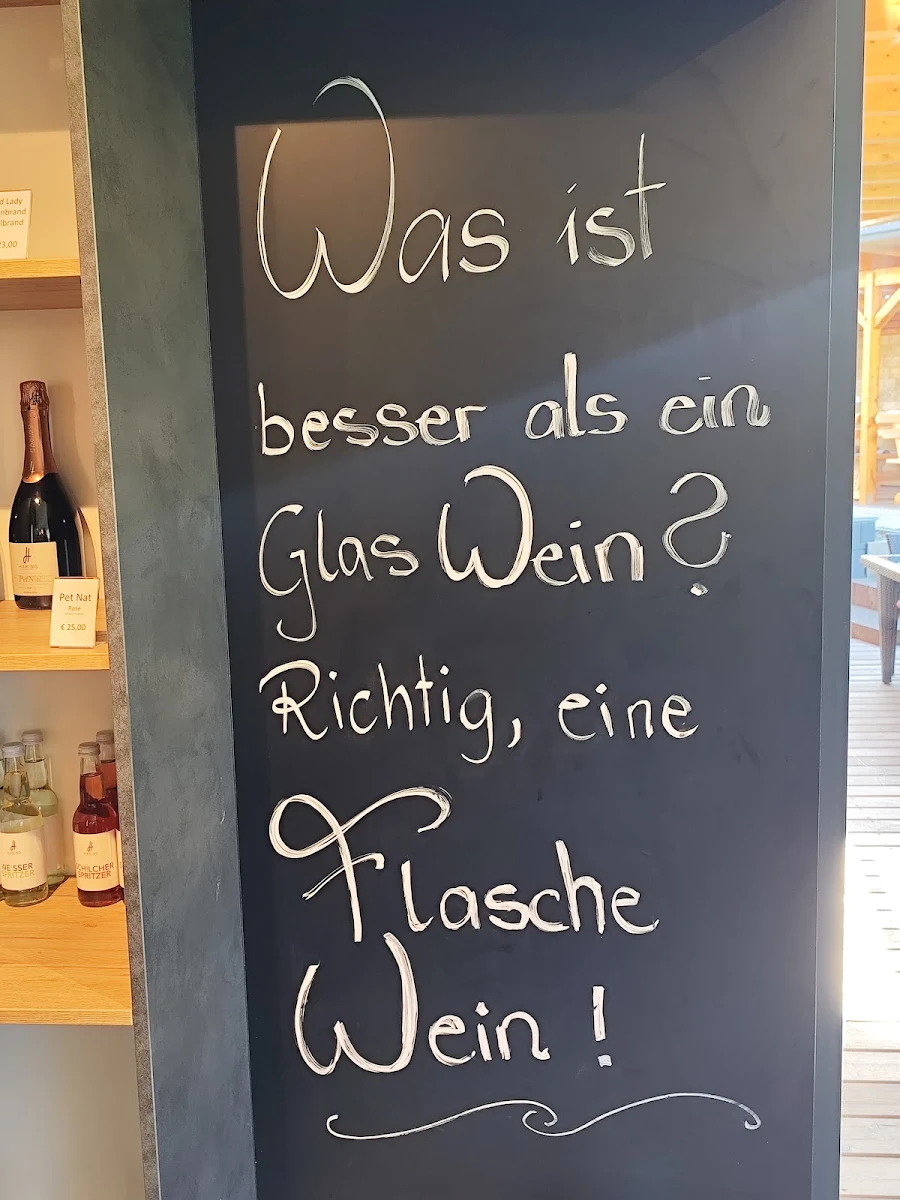 Was ist
besser als ein
Glas Wein?
Richtig, eine
Flasche
Wein!
Lady
Pet Nat
Rosé
€ 25,00
PetNat
WEISSER
SPRITZER
SCHILCHER
SPRITZER